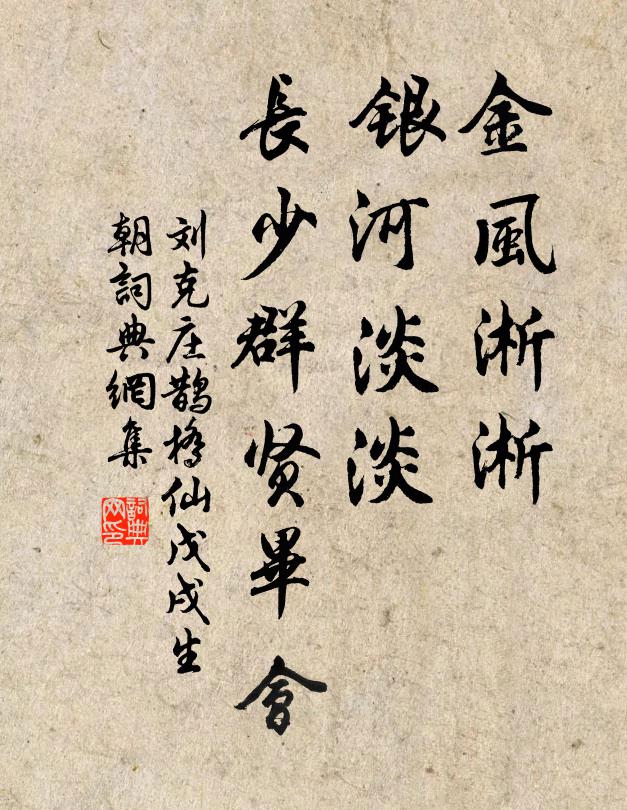 金風淅淅
銀河淡淡
長少群贤畢會
刘克庄鹊橋仙戊戌生
朝詞典網集
詞典
网印